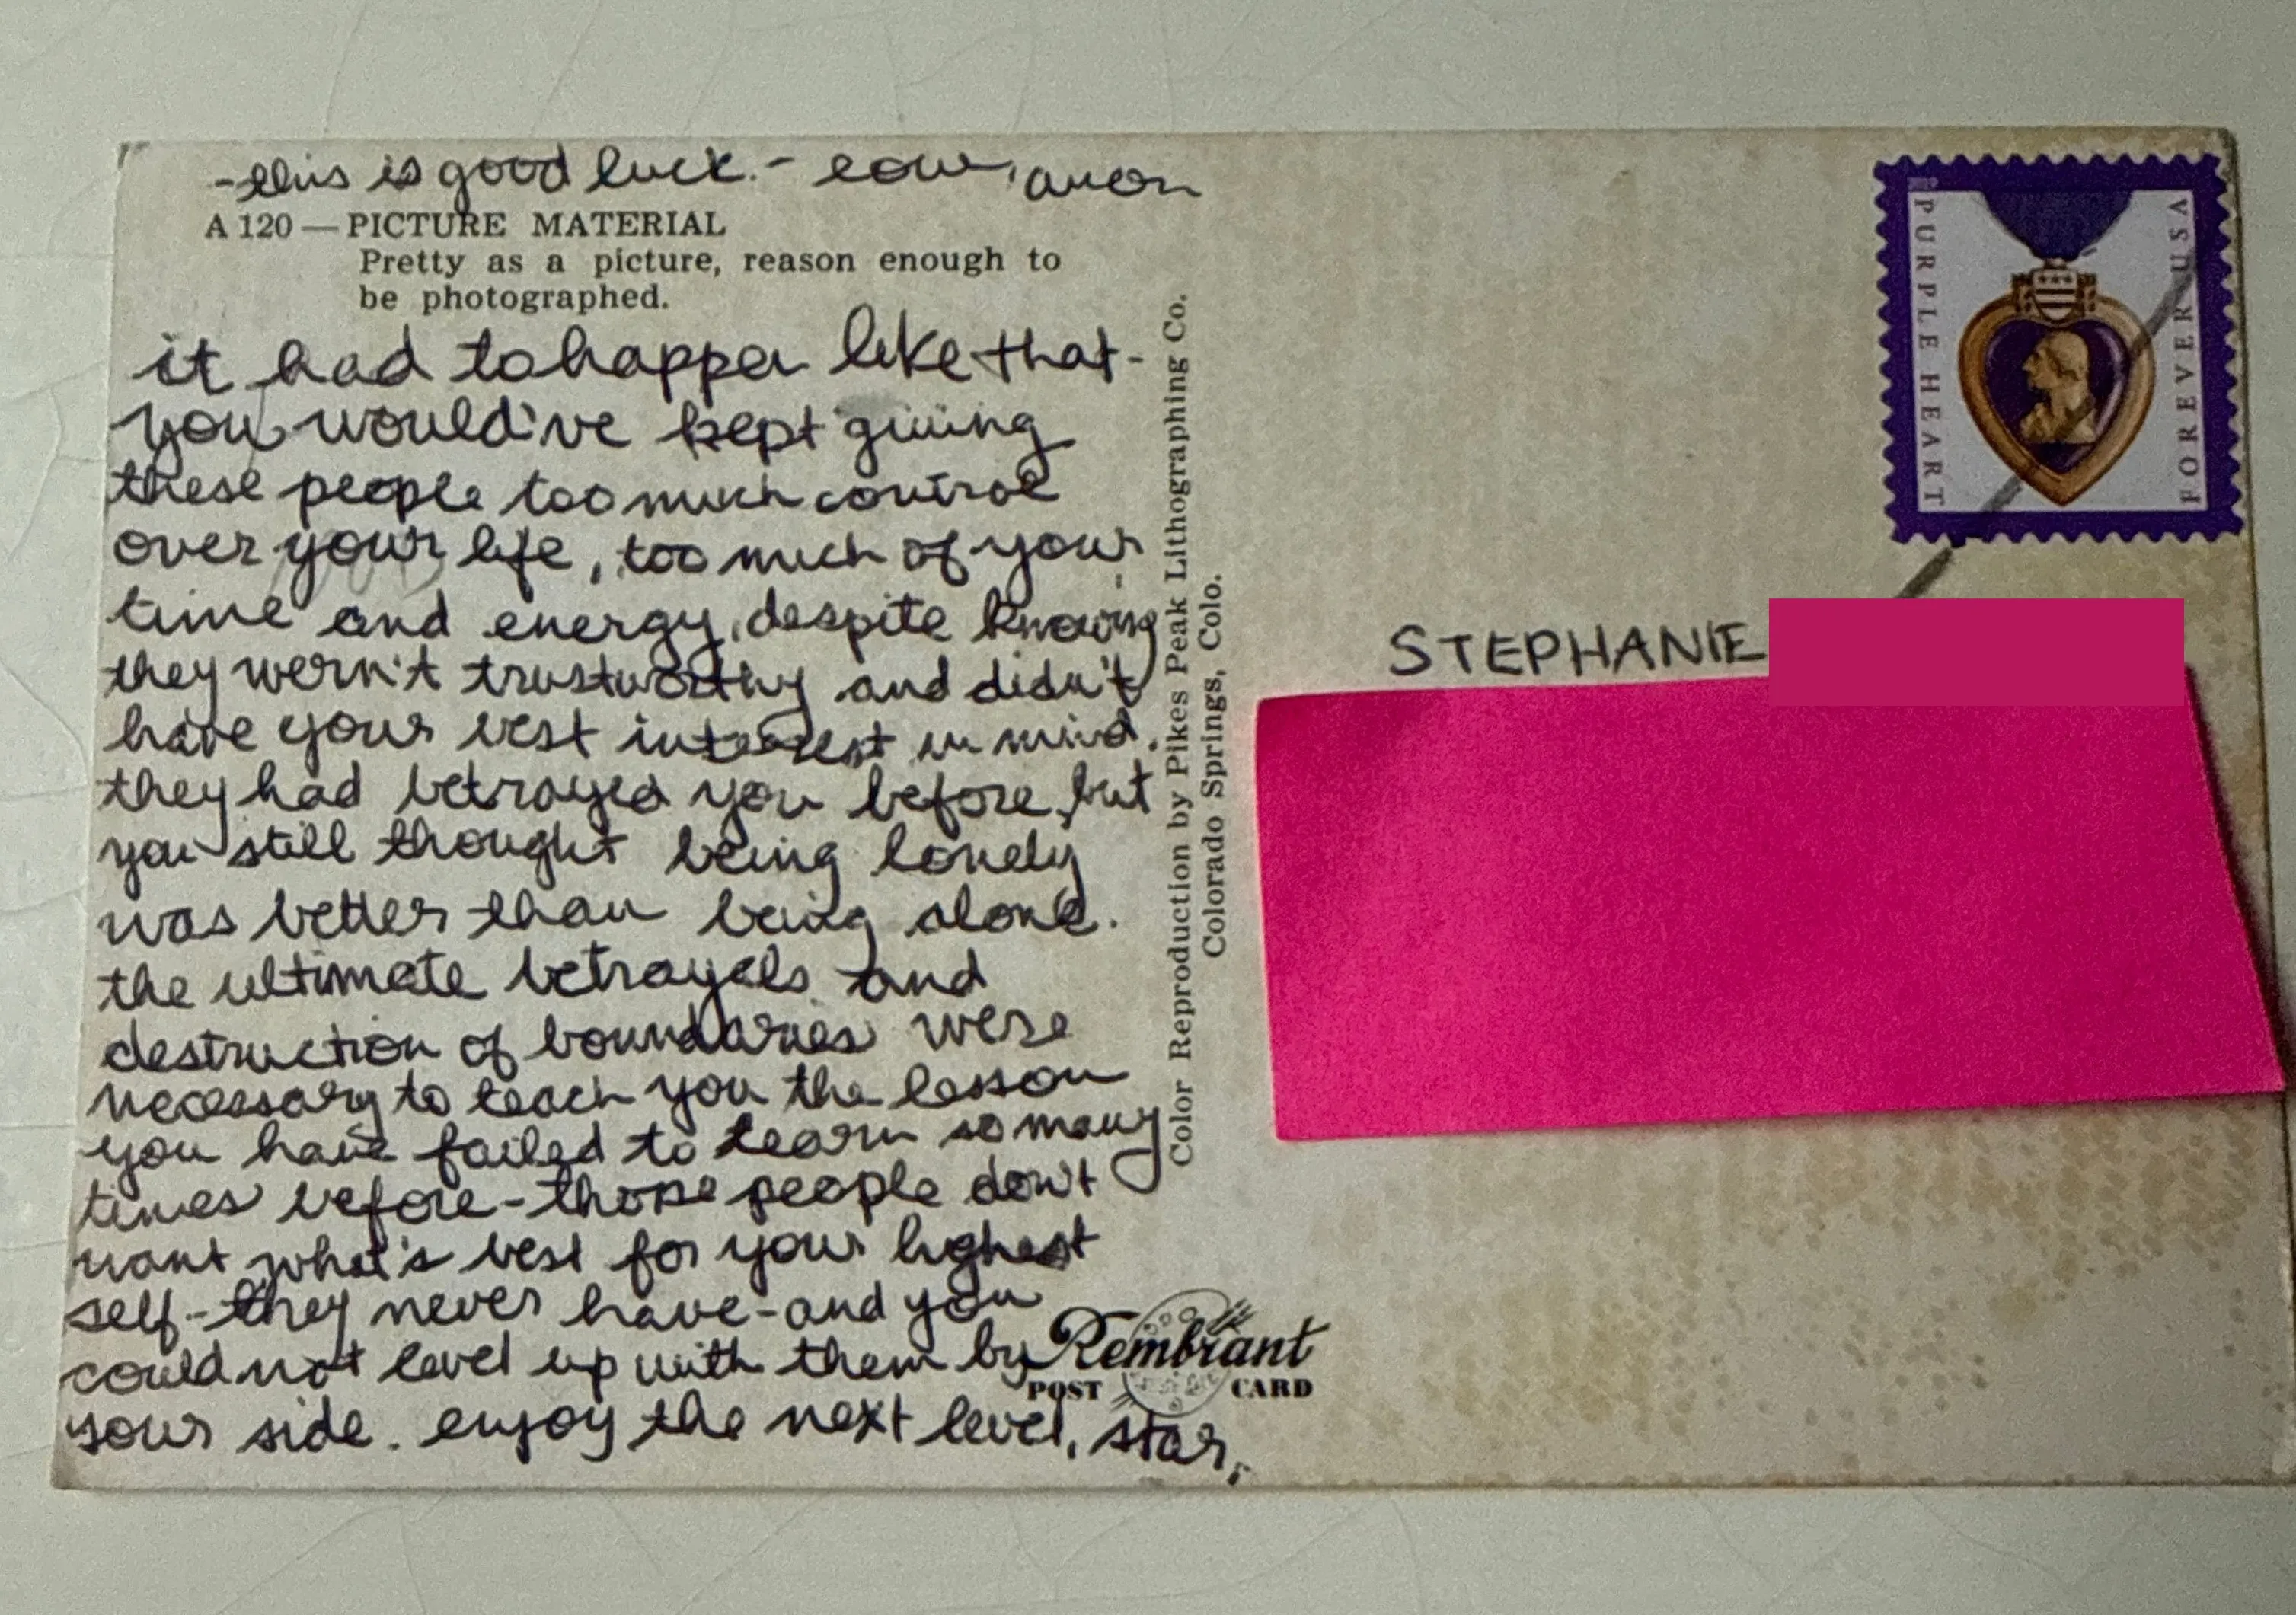 -this is good luck.-
A 120 — PICTURE MATERIAL
Pretty as a picture, reason enough to
be photographed.
it had to happen like that-
you would've kept giving
these people too much control
over your life, too much of your
time and energy, despite knowing
they wern't trustworthy and didn't
have your best interest in mind.
they had betrayed you before, but
you still thought being lonely
was better than being alone.
the ultimate betrayals and
destruction of boundaries were
necessary to teach you the lesson
you have failed to learn so many
times before-those people don't
want what's best for your highest
self-they never have-and you
could not level up with them by
your side. enjoy the next level, star,
Color Reproduction by Pikes Peak Lithographing Co.
Colorado Springs, Colo.
Rembrant
POST CARD
PURPLE HEART
FOREVER USA
STEPHANIE